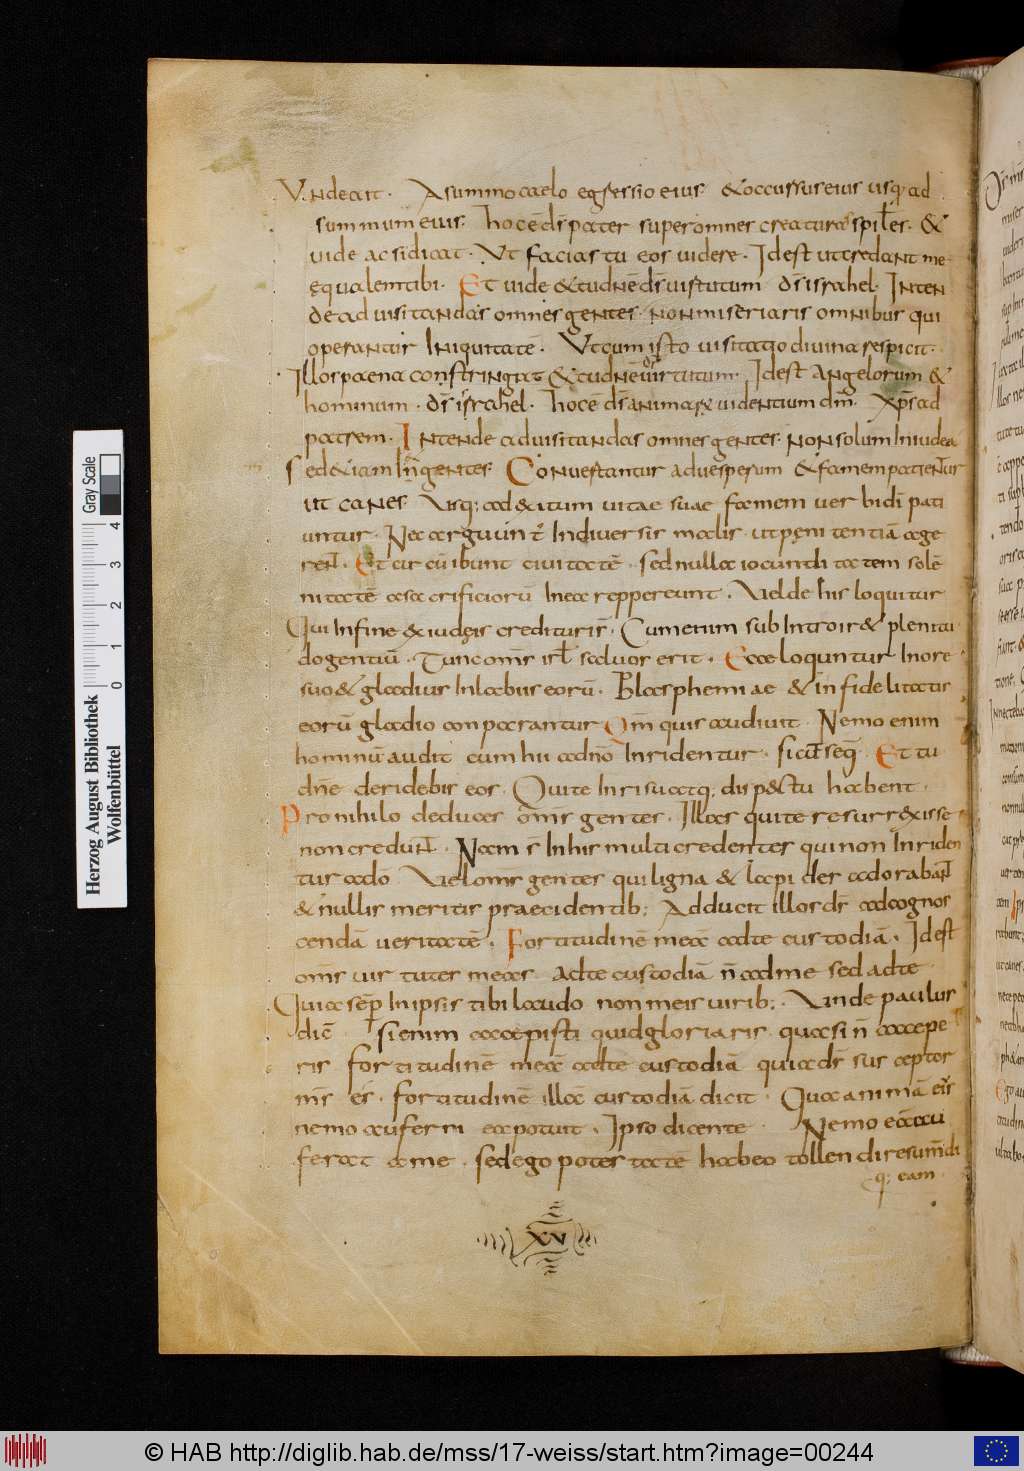 Vndeait. Asummo caelo egressio eius. & occursus eius usq; ad
summum eius. hoc ē dī pater super omnes creaturas spīles. &
uide ac si dicat. Ut facias tu eos uidere. Idest ut credant me
equalem tibi. Et uide & tu dnē dī uirtutum dī israhel. Inten
de ad uisitandas omnes gentes. non miseriaris omnibus qui
operantur Iniquitatē. Ut cum isto uisitatio diuina respicit.
Illos paena constringat & tu dnē uirtutum. Idest Angelorum &
hominum. dī israhel. hoc ē dī animarū uidentium dm̄. Xp̄s ad
patrem. Intende ad uisitandas omnes gentes. non solum In iudea
sed & iam In gentes. Conuertantur ad uesperum & famem patientur
ut canes. Usq; ad exitum uitae suae famem uerbi dī pati
untur. Nec arguunt̄ In diuersis malis. ut penitentiā age
rent. Et circūibunt ciuitatē. sed nulla iocunditatem solē
nitatē ac sacrificiorū In ea reppereunt. Vel de his loquitur
Qui In fine ex iudeis credituri s̄. Cum etum sub Introir& plenitu
do gentiū. Tunc omīs isrl saluus erit. Ecce loquntur In ore
suo & gladius In labiis eorū. Blasphemiae & infidelitatis
eorū gladio conparantur Qm̄ quis audiuit. Nemo enim
hominū audit cum hii ad nō Inridentur. sicut seq̄. Et tu
dnē deridebis eos. Qui te In risu atq; dispectu habent.
Pro nihilo deduces omīs gentes. Illas qui te resurrexisse
non credunt. Nam s̄ In his multi credentes qui non Inriden
tur a dō. Vel omīs gentes qui ligna & lapides adorabant
& nullis meritis praecidentib; Adducit illos dī ad cognos
cendā ueritatē. Fortitudinē meā ad te custodiā. Idest
omīs uirtutes meas ad te custodiā n̄ ad me sed ad te
Quia semp̄ In ipsis tibi laudo non meis uirib;. Vnde paulus
dic̄ si enim accepisti quid gloriaris. quasi n̄ accepe
ris fortitudinē meā ad te custodiā quia dī susceptor
mīs es. fortitudinē illā custodiā dicit. Qua animā eius
nemo auferri ea potuit. Ipso dicente. Nemo eā au
ferat a me. sed ego potestatē habeo tollendi resumendi
q; eam.
XV
Herzog August Bibliothek
Wolfenbüttel
Gray Scale
0 1 2 3 4
© HAB http://diglib.hab.de/mss/17-weiss/start.htm?image=00244